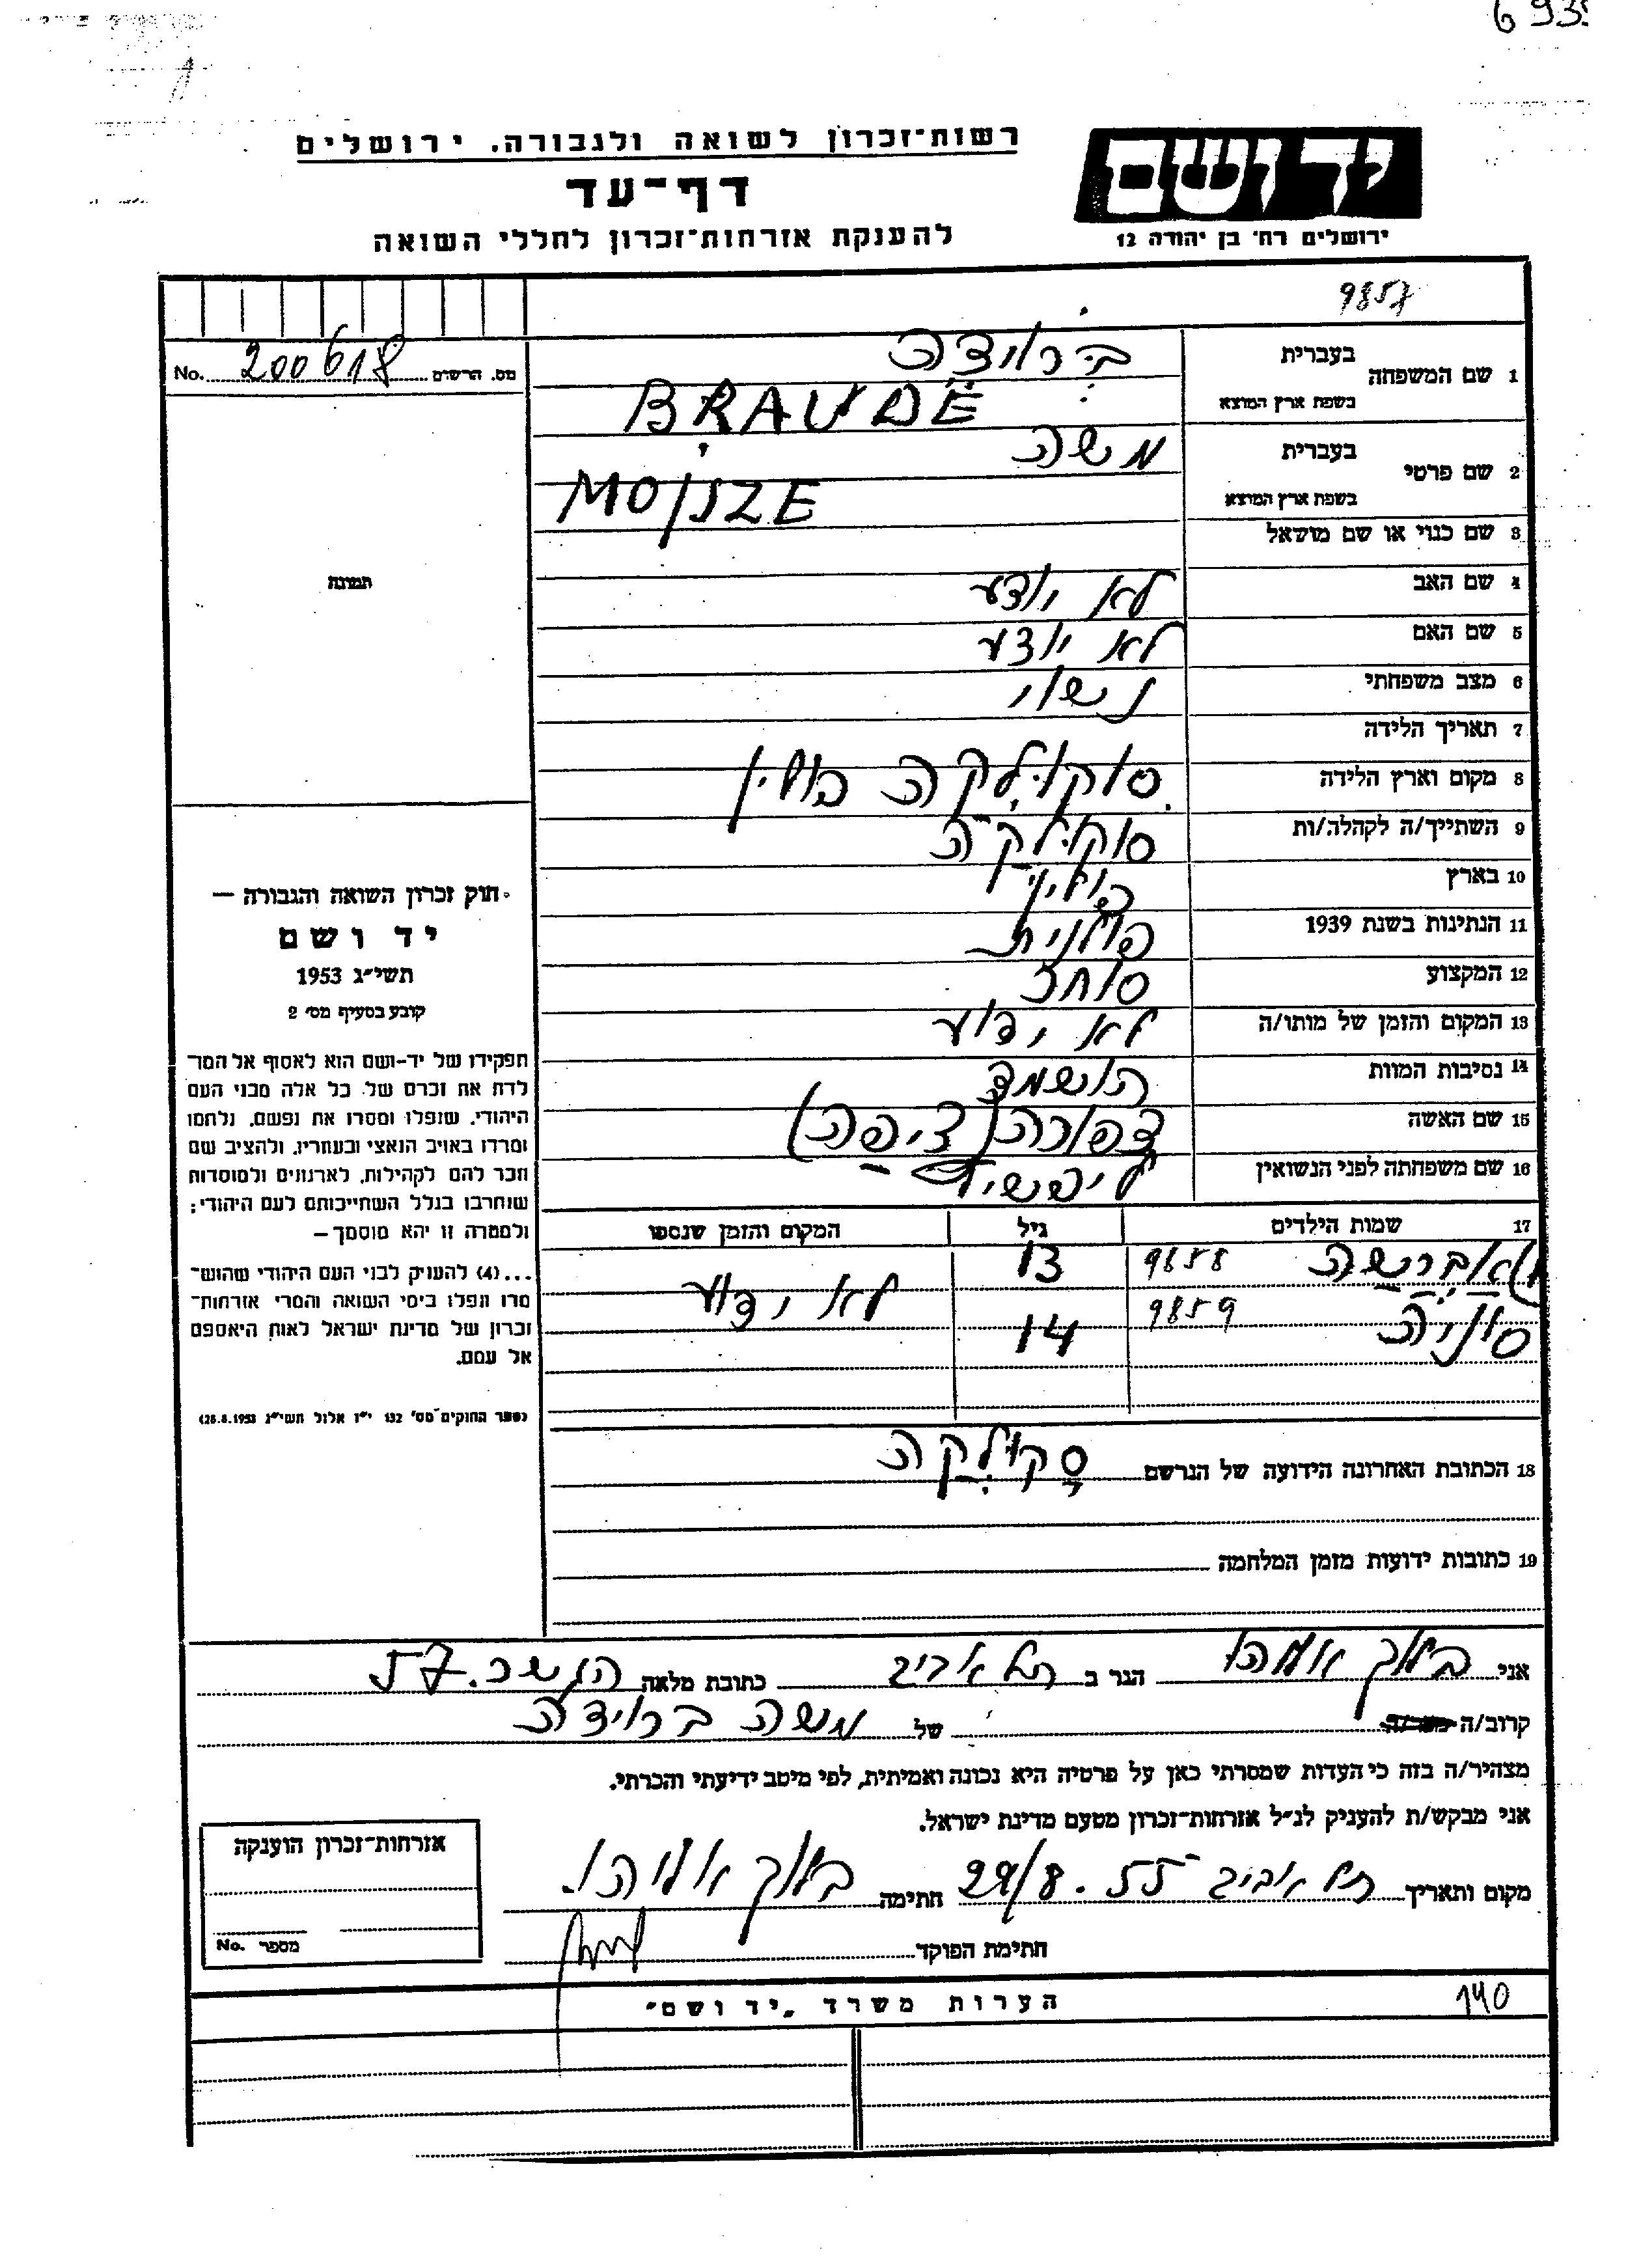 רשות־זכרון לשואה ולגבורה, ירושלים
דף־עד
להענקת אזרחות־זכרון לחללי השואה
יד ושם
ירושלים רח׳ בן יהודה 12
9857
מס. הרשום 200618 No.
1 שם המשפחה
בעברית
ברוידה
בשפת ארץ המוצא
BRAUDE
2 שם פרטי
בעברית
משה
בשפת ארץ המוצא
MOJSZE
3 שם כנוי או שם מושאל
4 שם האב לא יודע
5 שם האם לא יודע
6 מצב משפחתי נשוי
7 תאריך הלידה
8 מקום וארץ הלידה סוקולקה פולין
9 השתייך/ה לקהלה/ות סוקולקה
10 בארץ פולין
11 הנתינות בשנת 1939 פולנית
12 המקצוע סוחר
13 המקום והזמן של מותו/ה לא ידוע
14 נסיבות המוות הושמד
15 שם האשה צפורה (ציפה)
16 שם משפחתה לפני הנשואין
17 שמות הילדים גיל המקום והזמן שנספו
9858 13
סוניה 9859 14 לא ידוע
18 הכתובת האחרונה הידועה של הנרשם סקולקה
19 כתובות ידועות מזמן המלחמה
תמונה
חוק זכרון השואה והגבורה —
יד ושם
תשי״ג 1953
קובע בסעיף מס׳ 2
תפקידו של יד-ושם הוא לאסוף אל המו־
לדת את זכרם של כל אלה מבני העם
היהודי, שנפלו ומסרו את נפשם, נלחמו
ומרדו באויב הנאצי ובעוזריו, ולהציב שם
וזכר להם לקהילות, לארגונים ולמוסדות
שנחרבו בגלל השתייכותם לעם היהודי;
ולמטרה זו יהא מוסמך —
...(4) להעניק לבני העם היהודי שהוש־
מדו ונפלו בימי השואה והמרי אזרחות־
זכרון של מדינת ישראל לאות היאספם
אל עמם.
(ספר החוקים מס׳ 132 י״ז אלול תשי״ג 28.8.1953)
אני הגר ב תל אביב כתובת מלאה 57
קרוב/ה של משה ברוידה
מצהיר/ה בזה כי העדות שמסרתי כאן על פרטיה היא נכונה ואמיתית, לפי מיטב ידיעתי והכרתי.
אני מבקש/ת להעניק לנ״ל אזרחות־זכרון מטעם מדינת ישראל.
מקום ותאריך תל אביב 29/8.55 חתימה
חתימת הפוקד
אזרחות־זכרון הוענקה
מספר No.
הערות משרד „יד ושם״
140